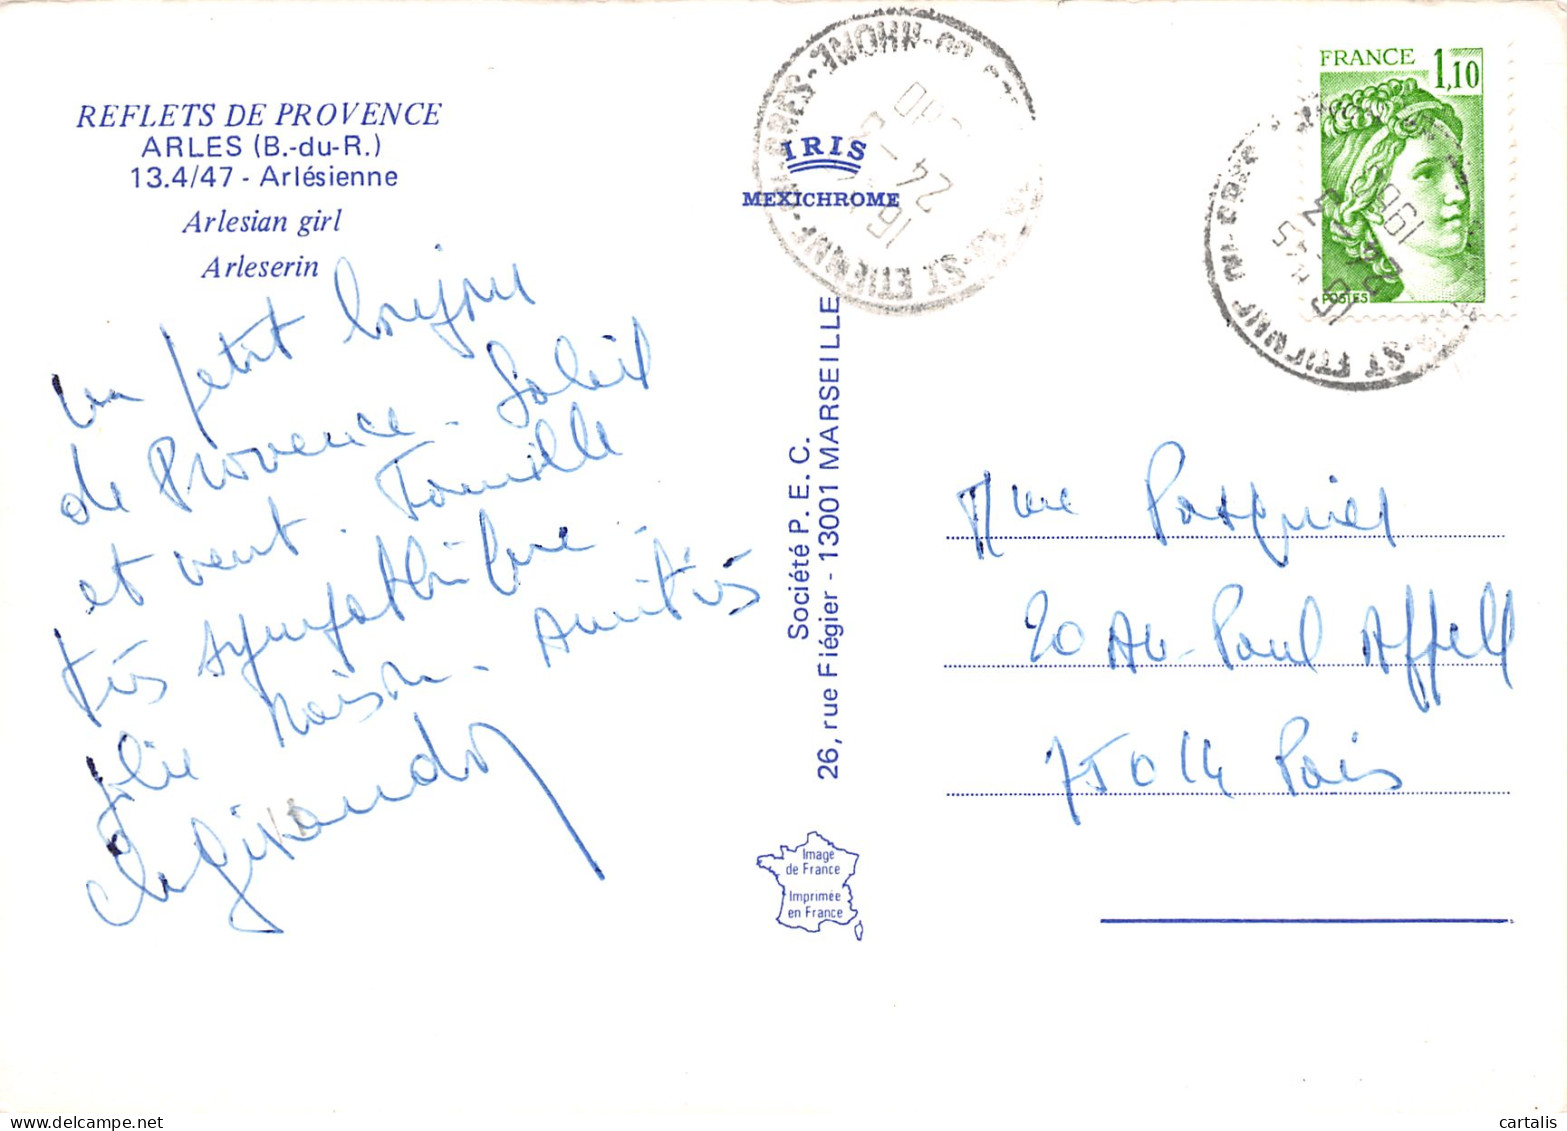 REFLETS DE PROVENCE
ARLES (B.-du-R.)
13.4/47 - Arlésienne
Arlesian girl
Arleserin
un petit bonjour
de Provence - Soleil
et vent. Famille
très sympathique -
jolie maison - Amitiés
IRIS
MEXICHROME
Société P.E.C.
26, rue Fiégier - 13001 MARSEILLE
Image
de France
Imprimée
en France
FRANCE 1,10
POSTES
ST ETIENNE
RHONE
Mme Pasquier
20 Av. Paul Appell
75014 Paris
cartalis